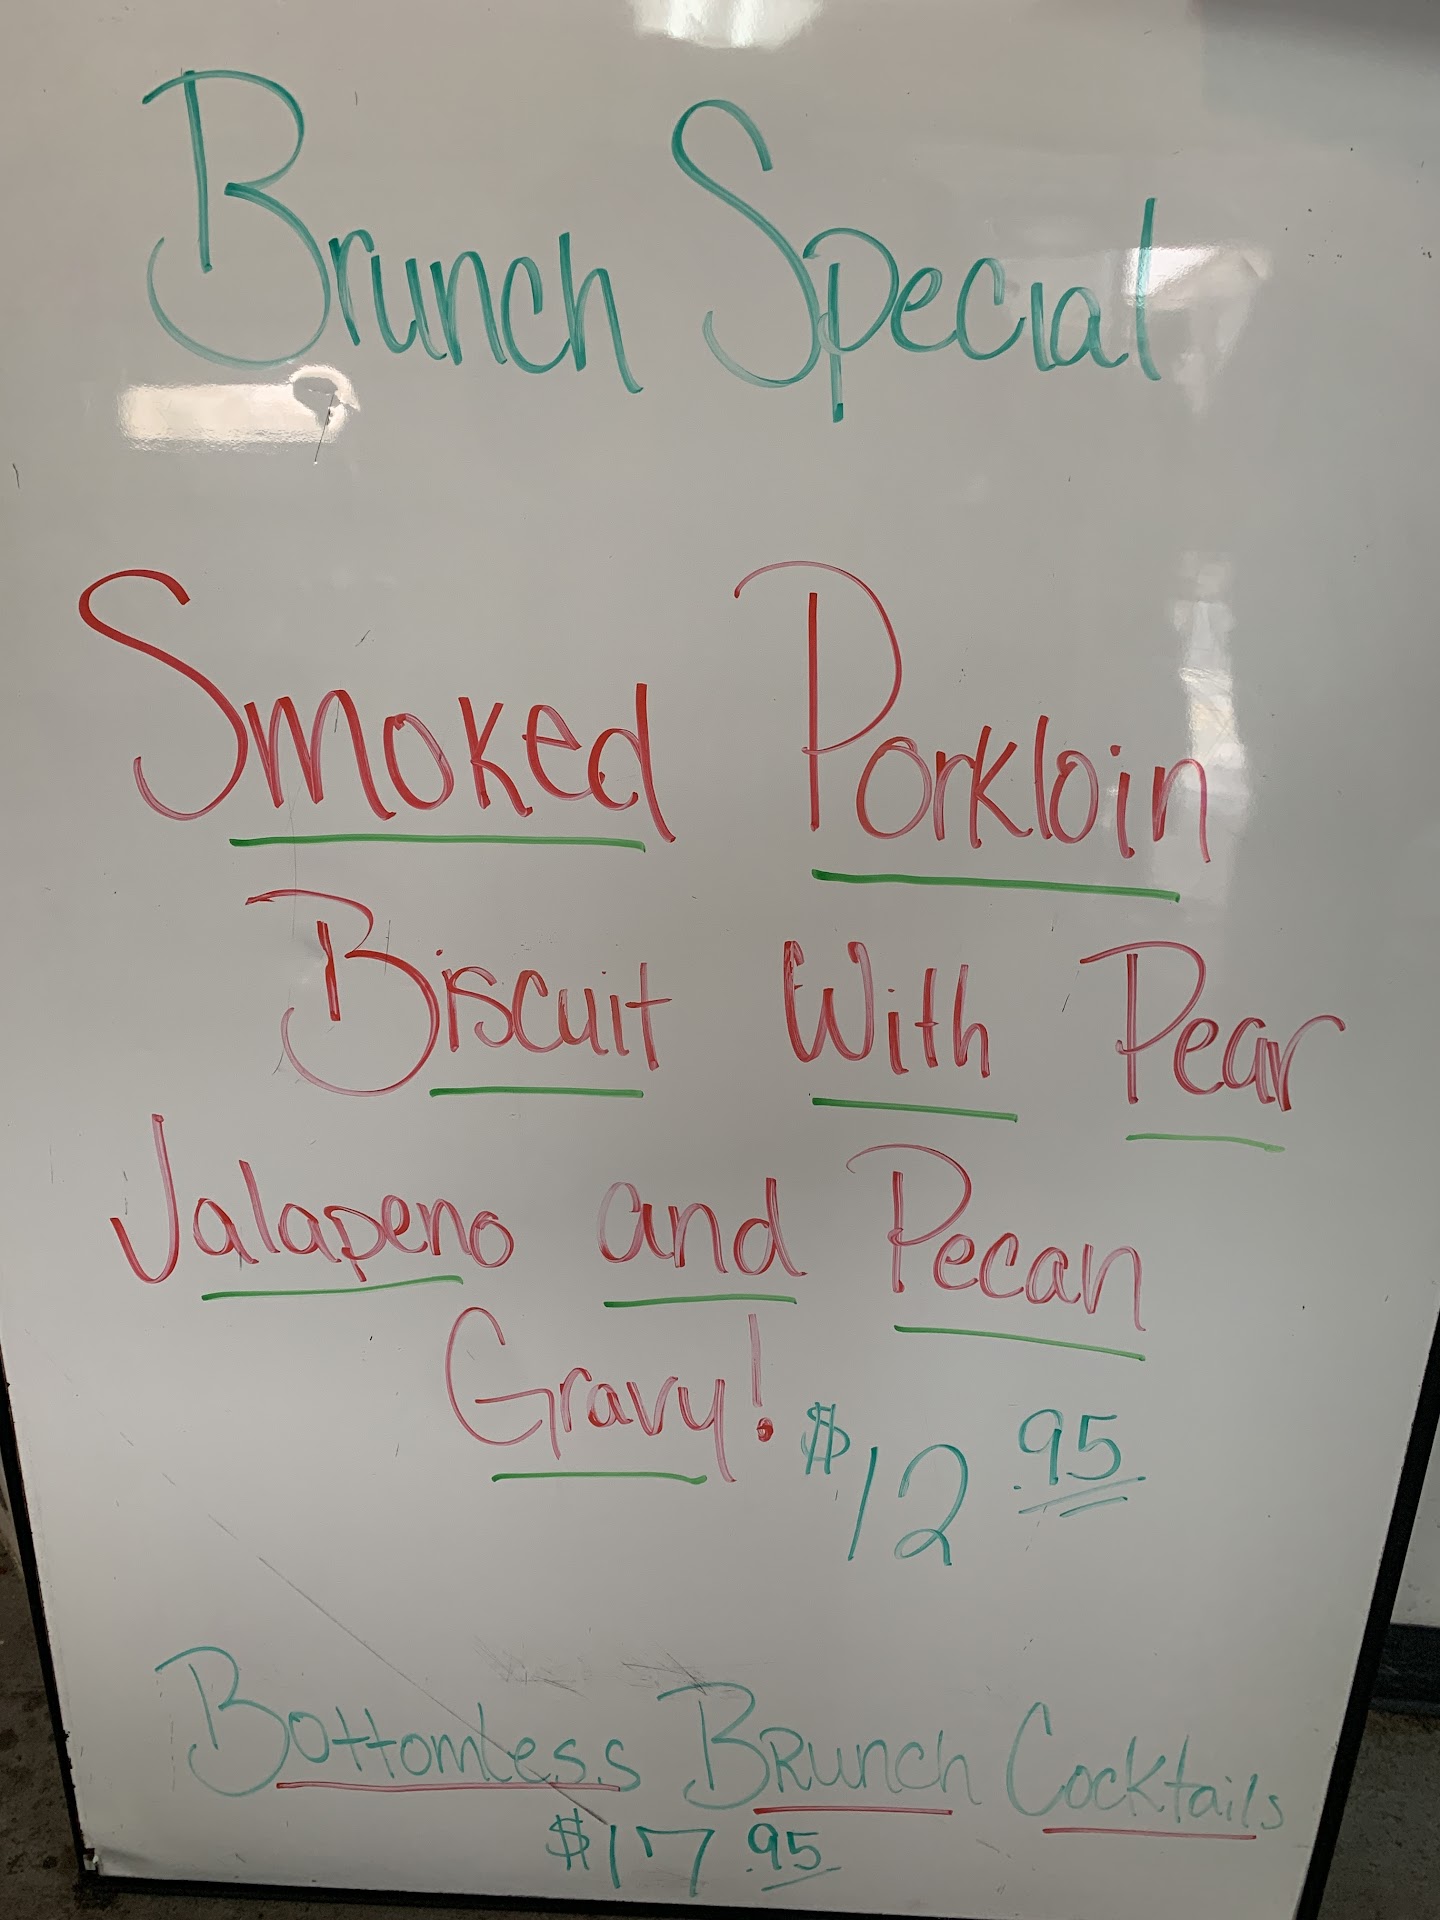 Brunch Special
Smoked Porkloin
Biscuit With Pear
Jalapeno and Pecan
Gravy! $12.95
Bottomless Brunch Cocktails
$17.95